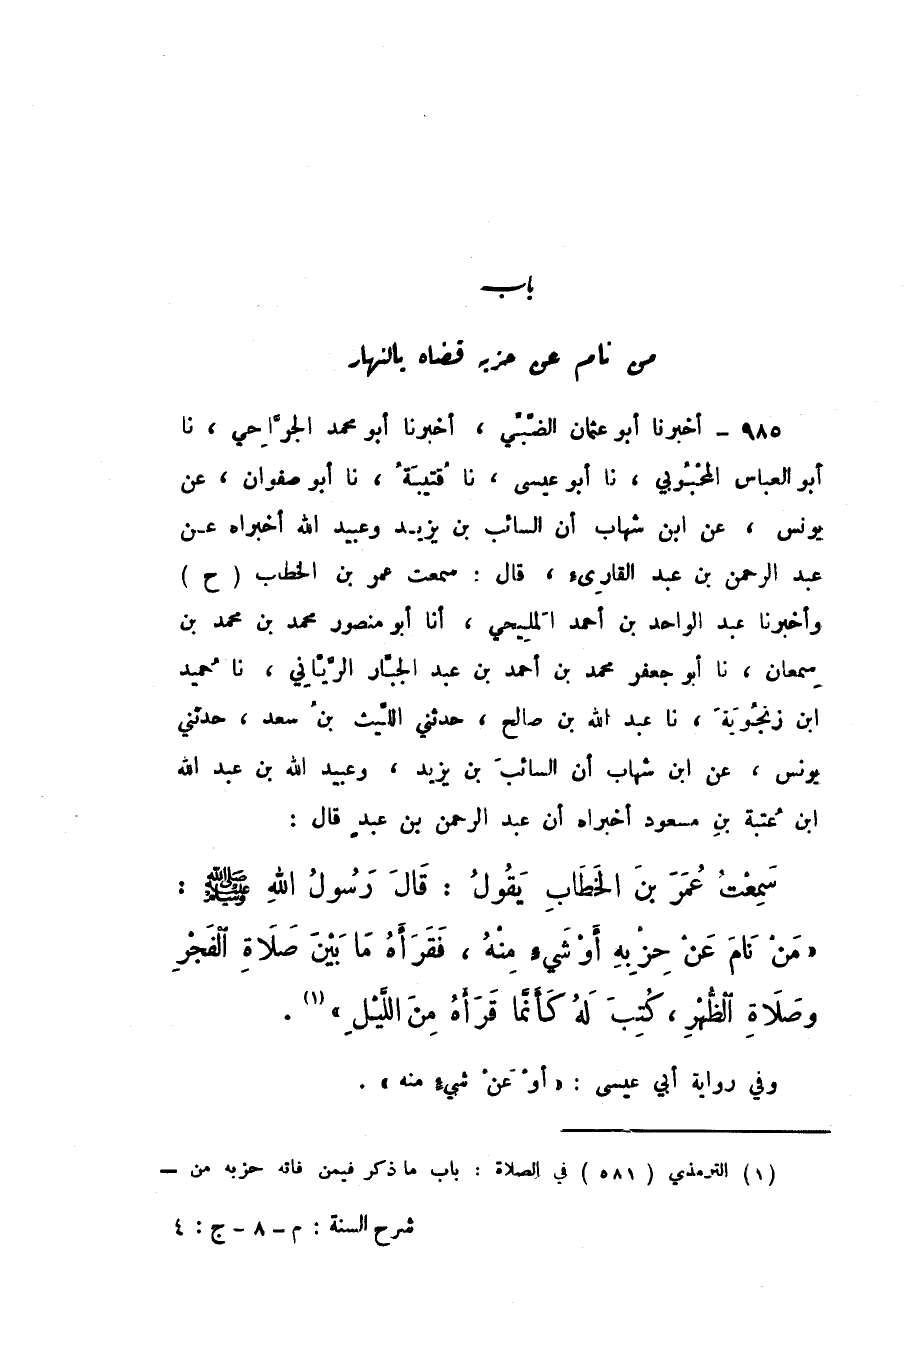 باب
من نام عن حزبه قضاه بالنهار
٩٨٥ – أخبرنا أبو عثمان الضَّبِّي ، أخبرنا أبو محمد الجرَّاحي ، نا
أبو العباس المَحْبُوبي ، نا أبو عيسى ، نا قُتيبَةُ ، نا أبو صفوان ، عن
يونس ، عن ابن شهاب أن السائب بن يزيد وعبيد الله أخبراه عن
عبد الرحمن بن عبد القاريء ، قال : سمعت عمر بن الخطاب ( ح )
وأخبرنا عبد الواحد بن أحمد المَلِيحي ، أنا أبو منصور محمد بن محمد بن
سِمعان ، نا أبو جعفر محمد بن أحمد بن عبد الجبَّار الرَّيَّاني ، نا حُميد
ابن زنجُويَةَ ، نا عبد الله بن صالح ، حدثني اللَّيث بنُ سعد ، حدثني
يونس ، عن ابن شهاب أن السائبَ بن يزيد ، وعبيد الله بن عبد الله
ابن عُتبة بنِ مسعود أخبراه أن عبد الرحمن بن عبدٍ قال :
سَمِعْتُ عُمَرَ بنَ الخَطَابِ يَقُولُ : قَالَ رَسُولُ اللهِ ﷺ :
« مَنْ نَامَ عَنْ حِزْبِهِ أَوْ شَيءٍ مِنْهُ ، فَقَرَأَهُ مَا بَيْنَ صَلَاةِ الْفَجْرِ
وصَلَاةِ الظُّهْرِ ، كُتِبَ لَهُ كَأَنَّمَا قَرَأَهُ مِنَ اللَّيْلِ » (١) .
وفي رواية أبي عيسى : « أوْ عَنْ شيءٍ منه » .
(١) الترمذي ( ٥٨١ ) في الصلاة : باب ما ذكر فيمن فاته حزبه من —
شرح السنة : م – ٨ – ج : ٤